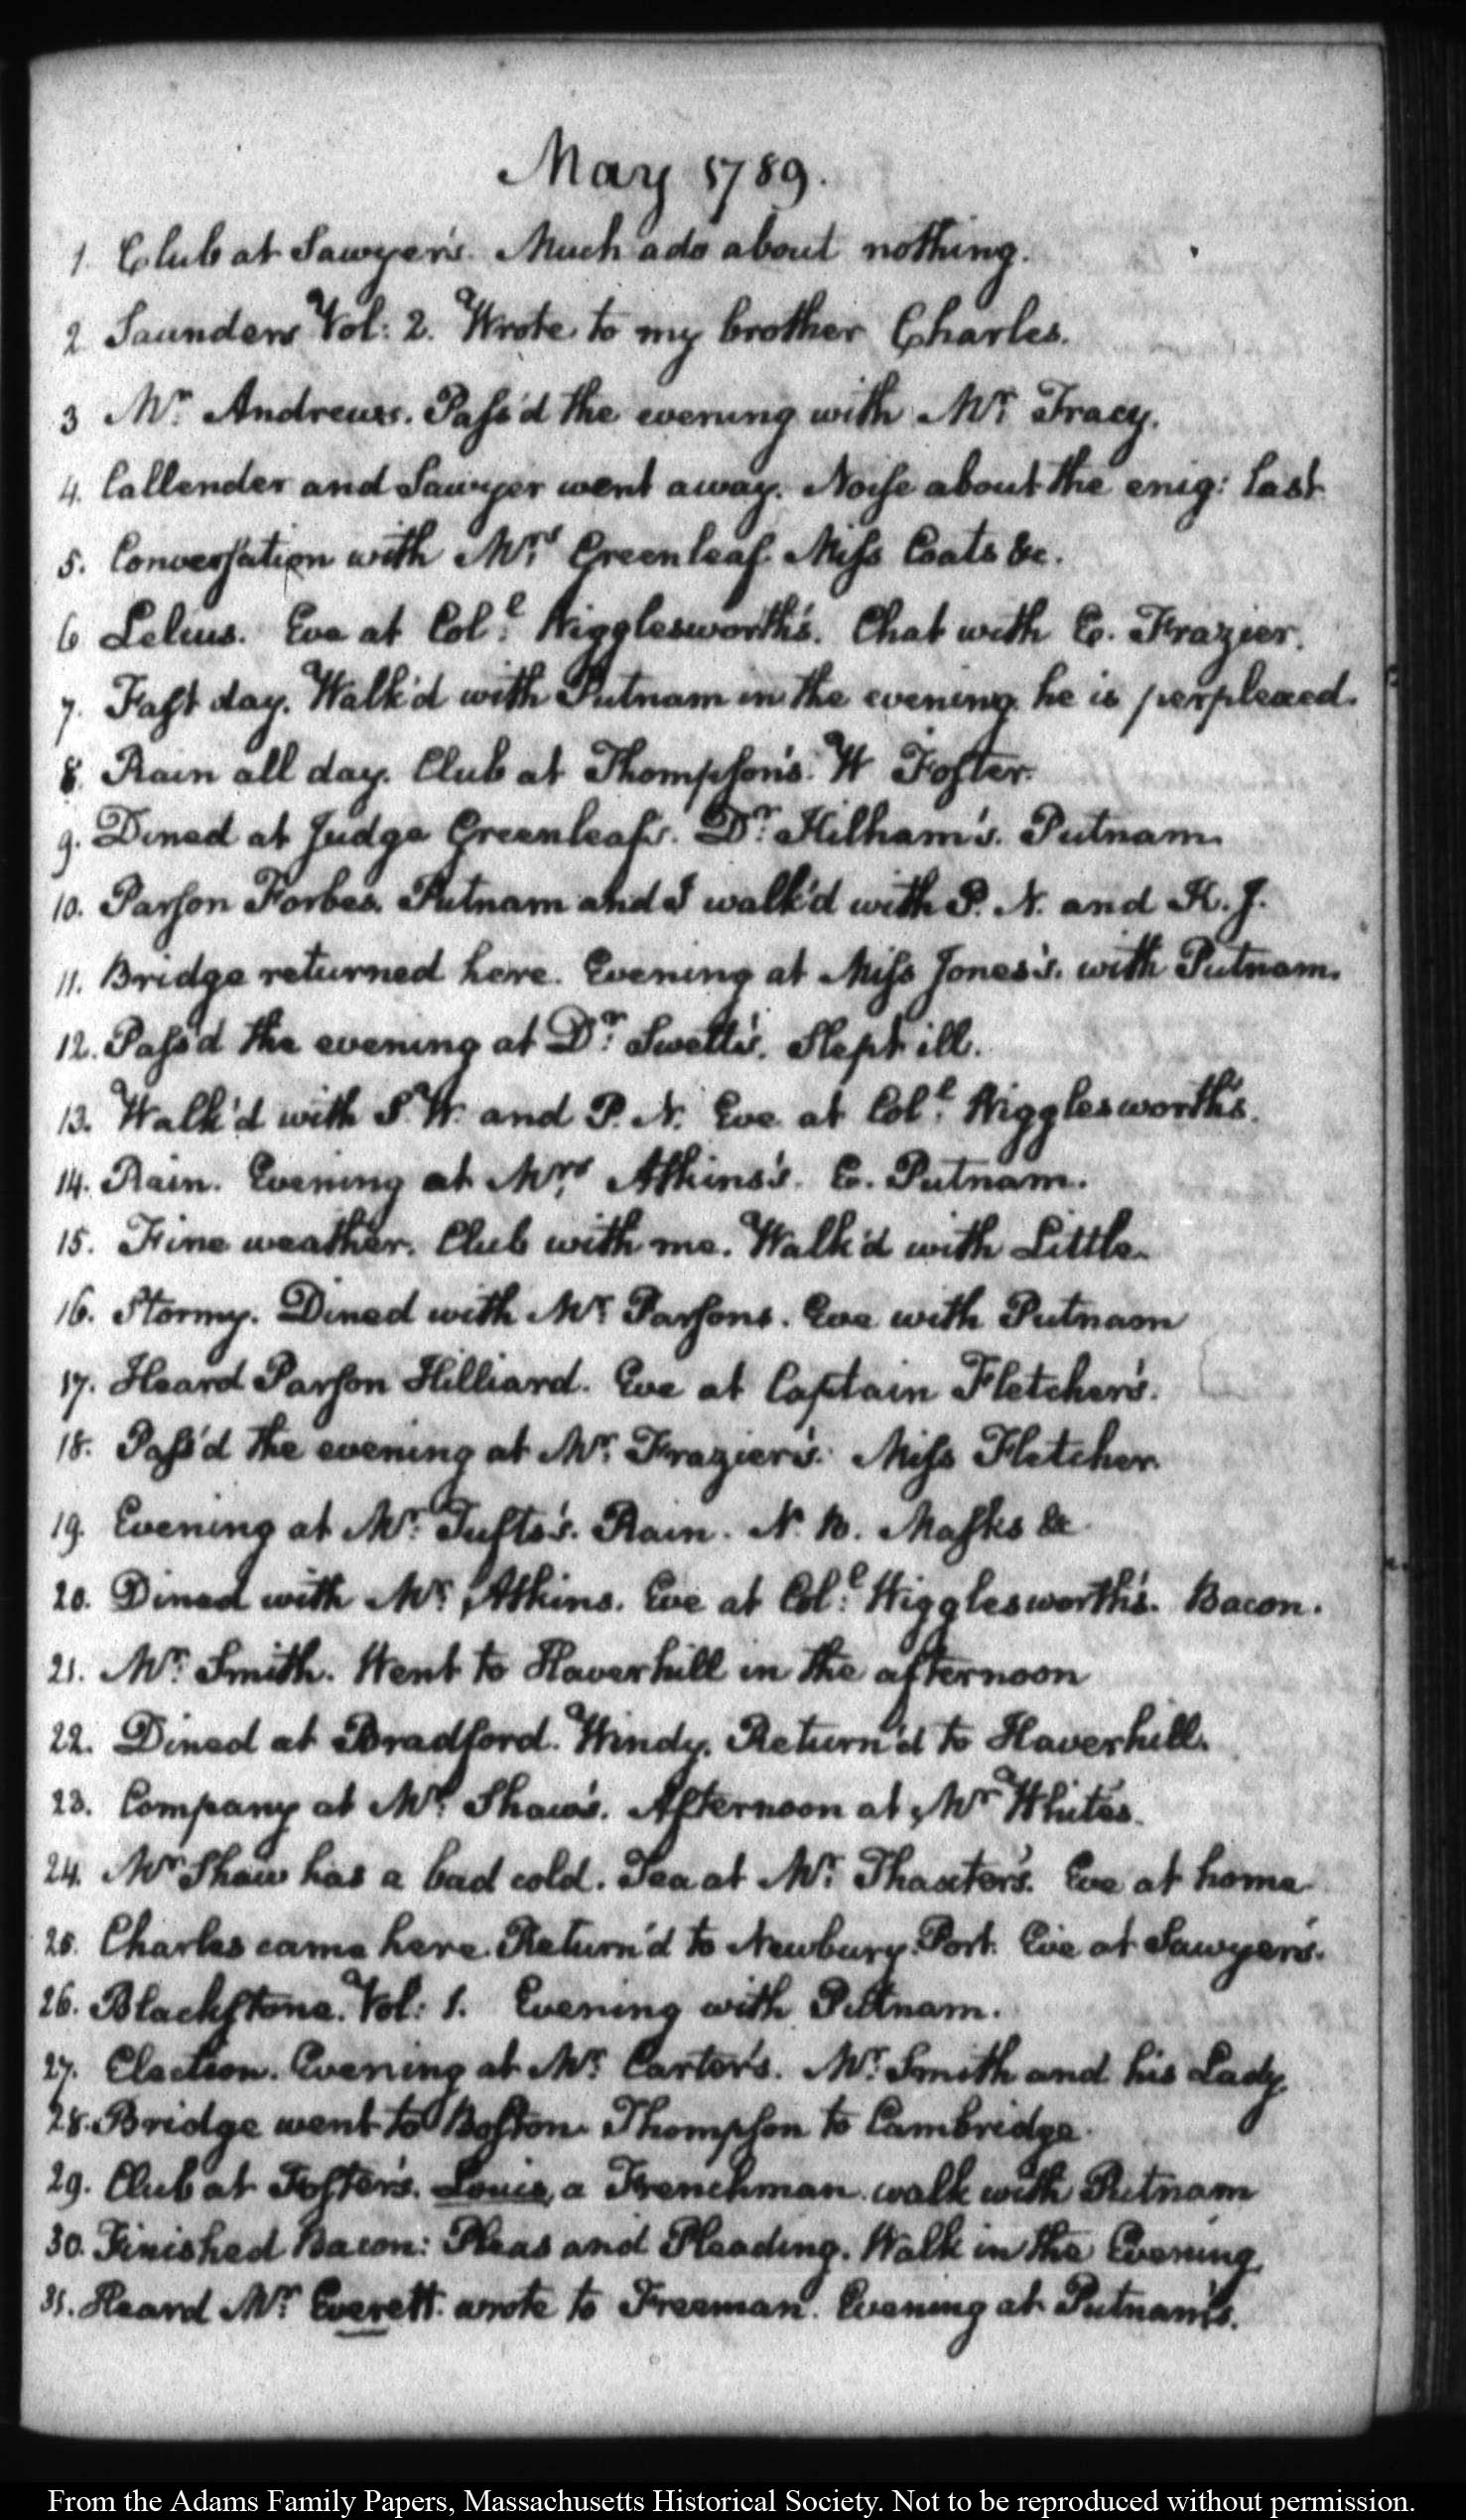 May 1789.
1. Club at Sawyer's. Much ado about nothing.
2 Saunders Vol: 2. Wrote to my brother Charles.
3 Mr. Andrews. Pass'd the evening with Mr. Tracy.
4. Callender and Sawyer went away. Noise about the enig: last
5. Conversation with Mrs. Greenleaf. Miss Coats &c.
6 Lelius. Eve at Coll. Wigglesworth's. Chat with E. Frazier.
7. Fast day. Walk'd with Putnam in the evening. he is perplexed.
8. Rain all day. Club at Thompson's. W Foster.
9. Dined at Judge Greenleaf's. Dr. Kilham's. Putnam.
10. Parson Forbes. Putnam and I walk'd with P. N. and K. J.
11. Bridge returned here. Evening at Miss Jones's. with Putnam.
12. Pass'd the evening at Dr. Swett's. Slept ill.
13. Walk'd with S. W. and P. N. Eve at Coll. Wigglesworth's.
14. Rain. Evening at Mrs. Atkins's. E. Putnam.
15. Fine weather. Club with me. Walk'd with Little.
16. Stormy. Dined with Mr. Parsons. Eve with Putnam
17. Heard Parson Hilliard. Eve at Captain Fletcher's.
18. Pass'd the evening at Mr. Frazier's. Miss Fletcher.
19. Evening at Mr. Tufts's. Rain. N. B. Masks &c
20. Dined with Mr. Atkins. Eve at Coll. Wigglesworth's. Bacon.
21. Mr. Smith. Went to Haverhill in the afternoon
22. Dined at Bradford. Windy. Return'd to Haverhill.
23. Company at Mr. Shaw's. Afternoon at Mr White's.
24. Mr Shaw has a bad cold. Tea at Mr. Thaxter's. Eve at home
25. Charles came here. Return'd to Newbury-Port. Eve at Sawyer's.
26. Blackstone. Vol: 1. Evening with Putnam.
27. Election. Evening at Mr. Carter's. Mr. Smith and his Lady.
28. Bridge went to Boston. Thompson to Cambridge.
29. Club at Foster's. Louis, a Frenchman. walk with Putnam
30. Finished Bacon: Pleas and Pleading. Walk in the Evening.
31. Heard Mr. Everett. wrote to Freeman. Evening at Putnam's.
From the Adams Family Papers, Massachusetts Historical Society. Not to be reproduced without permission.